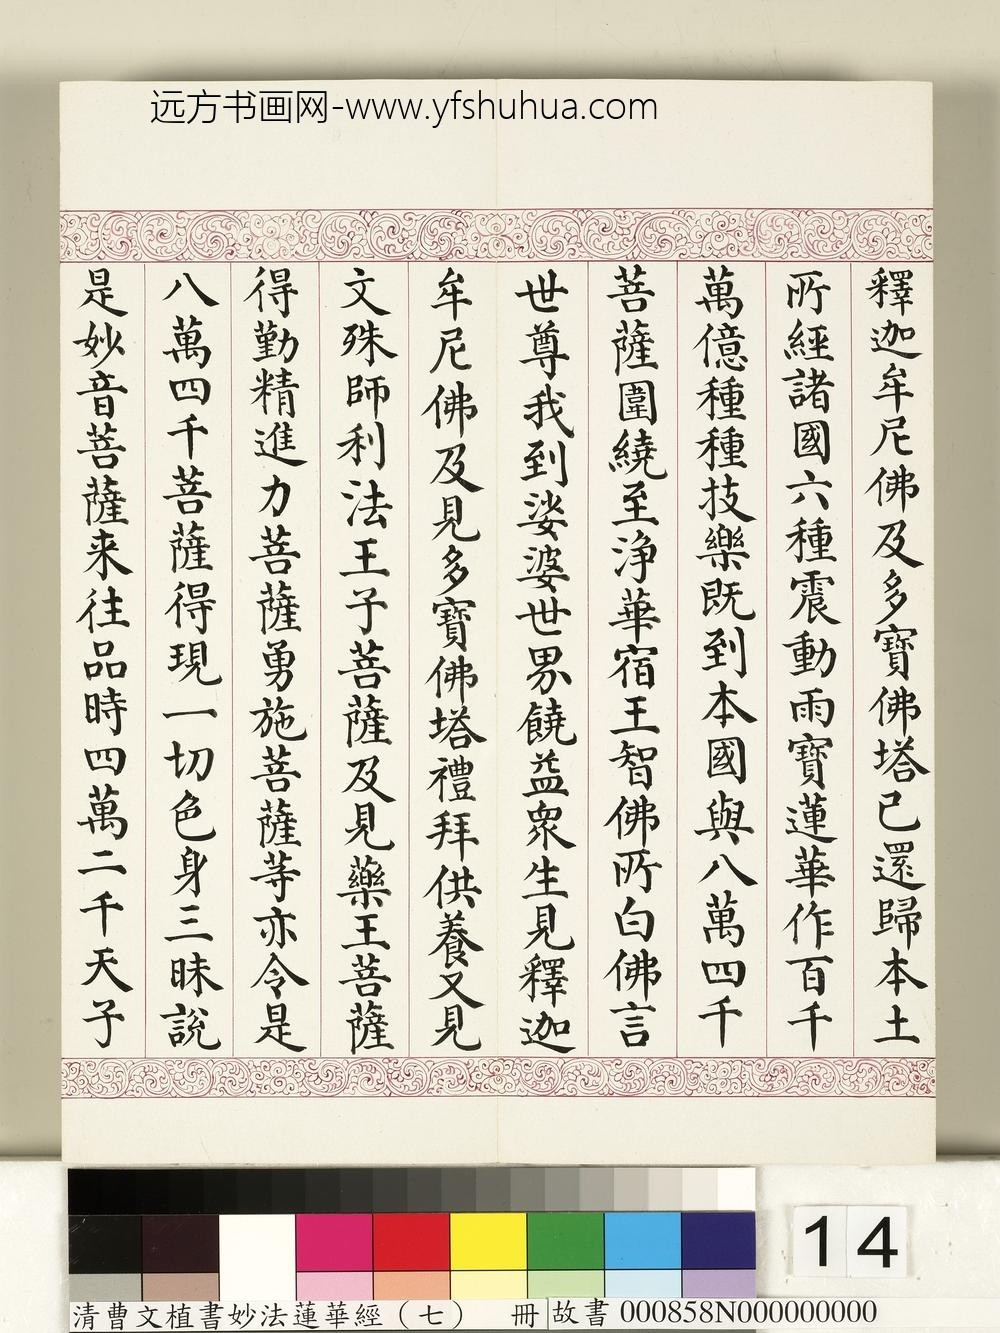 远方书画网-www.yfshuhua.com
釋迦牟尼佛及多寶佛塔已還歸本土
所經諸國六種震動雨寶蓮華作百千
萬億種種技樂既到本國與八萬四千
菩薩圍繞至淨華宿王智佛所白佛言
世尊我到娑婆世界饒益衆生見釋迦
牟尼佛及見多寶佛塔禮拜供養又見
文殊師利法王子菩薩及見藥王菩薩
得勤精進力菩薩勇施菩薩等亦令是
八萬四千菩薩得現一切色身三昧說
是妙音菩薩来往品時四萬二千天子
14
清曹文植書妙法蓮華經（七） 冊 故書 000858N000000000